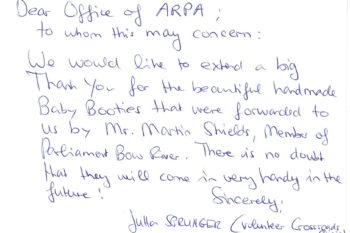 Dear Office of ARPA ;
to whom this may concern :
We would like to extend a big
Thank You for the beautiful handmade
Baby Booties that were forwarded to
us by Mr. Martin Shields, Member of
Parliament Bow River. There is no doubt
that they will come in very handy in the
future !
Sincerely,
Jutta (Volunteer Crossroads,